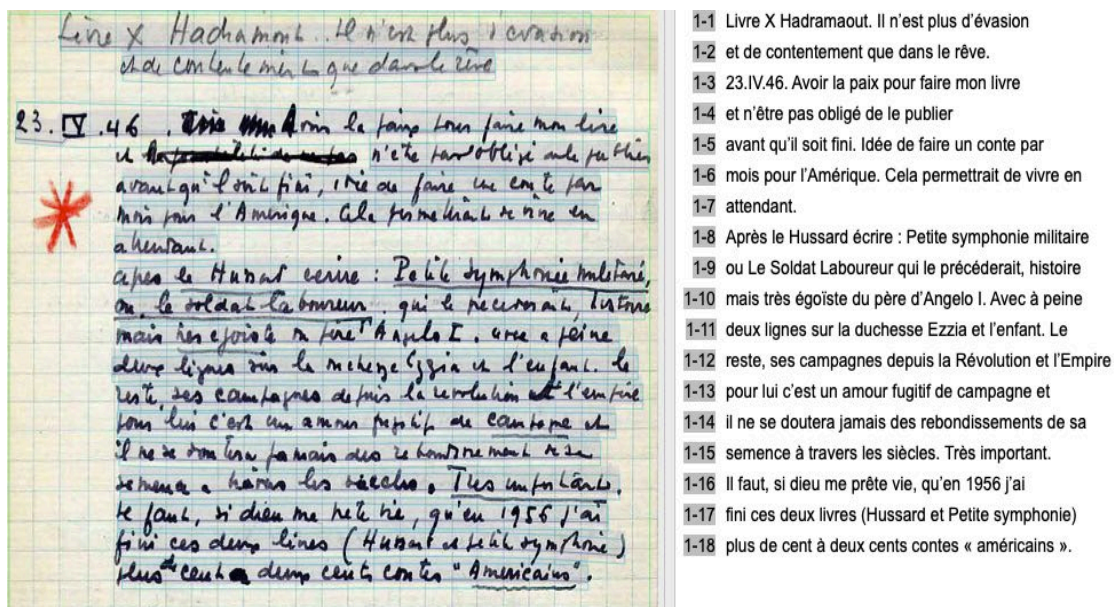 Livre X Hadramout. Il n'est plus d'évasion
et de contentement que dans le rêve
23. IV. 46. Avoir la paix pour faire mon livre
et n'être pas obligé de le publier
avant qu'il soit fini, idée de faire un conte par
mois pour l'Amérique. Cela permettrait de vivre en
attendant.
après le Hussard écrire : Petite symphonie militaire,
ou le soldat laboureur qui le précèderait, histoire
mais très égoïste du père d'Angelo I. avec a peine
deux lignes sur la duchesse Ezzia et l'enfant. le
reste, ses campagnes depuis la revolution et l'empire
pour lui c'est un amour fugitif de campagne et
il ne se doutera jamais des rebondissement de sa
semence a travers les siècles. Très important.
Il faut, si dieu me prête vie, qu'en 1956 j'ai
fini ces deux livres (Hussard et petite symphonie)
plus de cent a deux cents contes "Americains".
1-1 Livre X Hadramaout. Il n'est plus d'évasion
1-2 et de contentement que dans le rêve.
1-3 23.IV.46. Avoir la paix pour faire mon livre
1-4 et n'être pas obligé de le publier
1-5 avant qu'il soit fini. Idée de faire un conte par
1-6 mois pour l'Amérique. Cela permettrait de vivre en
1-7 attendant.
1-8 Après le Hussard écrire : Petite symphonie militaire
1-9 ou Le Soldat Laboureur qui le précéderait, histoire
1-10 mais très égoïste du père d'Angelo I. Avec à peine
1-11 deux lignes sur la duchesse Ezzia et l'enfant. Le
1-12 reste, ses campagnes depuis la Révolution et l'Empire
1-13 pour lui c'est un amour fugitif de campagne et
1-14 il ne se doutera jamais des rebondissements de sa
1-15 semence à travers les siècles. Très important.
1-16 Il faut, si dieu me prête vie, qu'en 1956 j'ai
1-17 fini ces deux livres (Hussard et Petite symphonie)
1-18 plus de cent à deux cents contes « américains ».